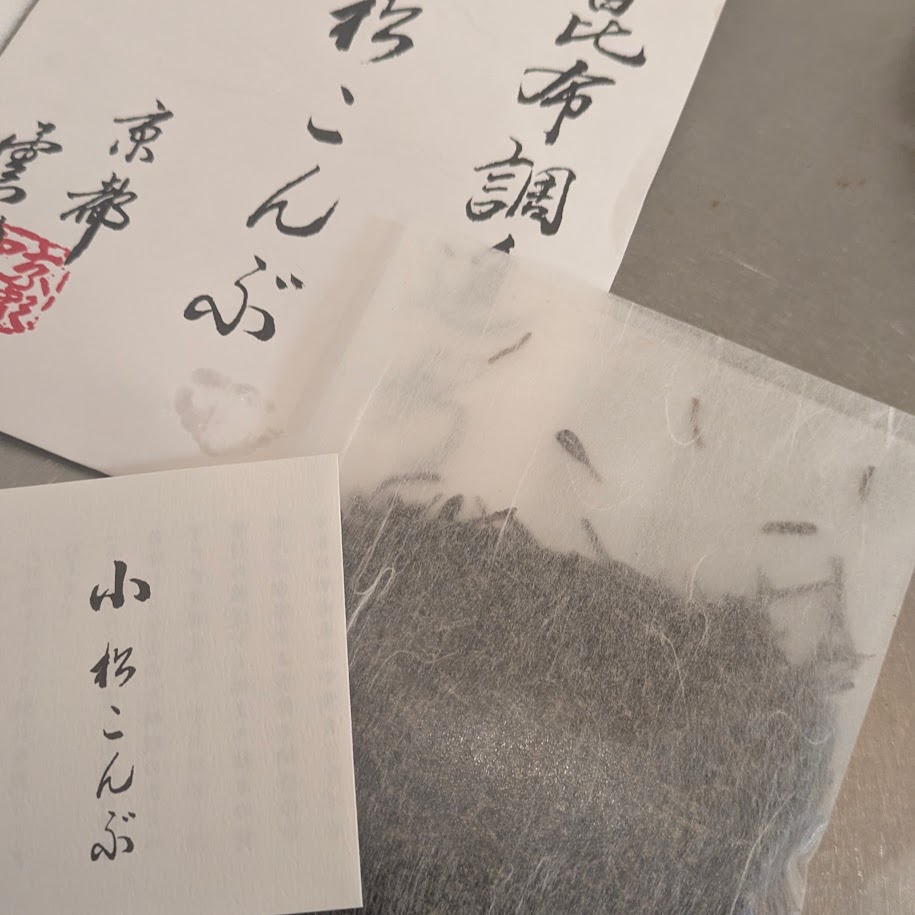 昆布調
松こんぶ
京都
雲
小松こんぶ